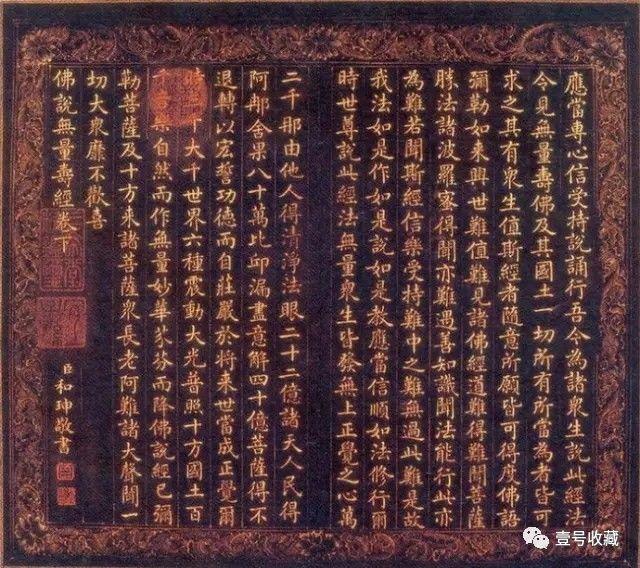 應當專心信受持說誦行吾今為諸衆生說此經法
今見無量壽佛及其國土一切所有所當為者皆可
求之其有衆生值斯經者隨意所願皆可得度佛語
彌勒如來興世難值難見諸佛經道難得難聞菩薩
勝法諸波羅宻得聞亦難遇善知識聞法能行此亦
為難若聞斯經信樂受持難中之難無過此難是故
我法如是作如是說如是教應當信順如法修行爾
時世尊說此經法無量衆生皆發無上正覺之心萬
二千那由他人得清淨法眼二十二億諸天人民得
阿那舍果八十萬比邱漏盡意解四十億菩薩得不
退轉以宏誓功德而自莊嚴於將來世當成正覺爾
時千大千世界六種震動大光普照十方國土百
千樂自然而作無量妙華芬而降佛說經已彌
勒菩薩及十方來諸菩薩衆長老阿難諸大聲聞一
切大衆靡不歡喜
佛說無量壽經卷下
臣和珅敬書
壹号收藏